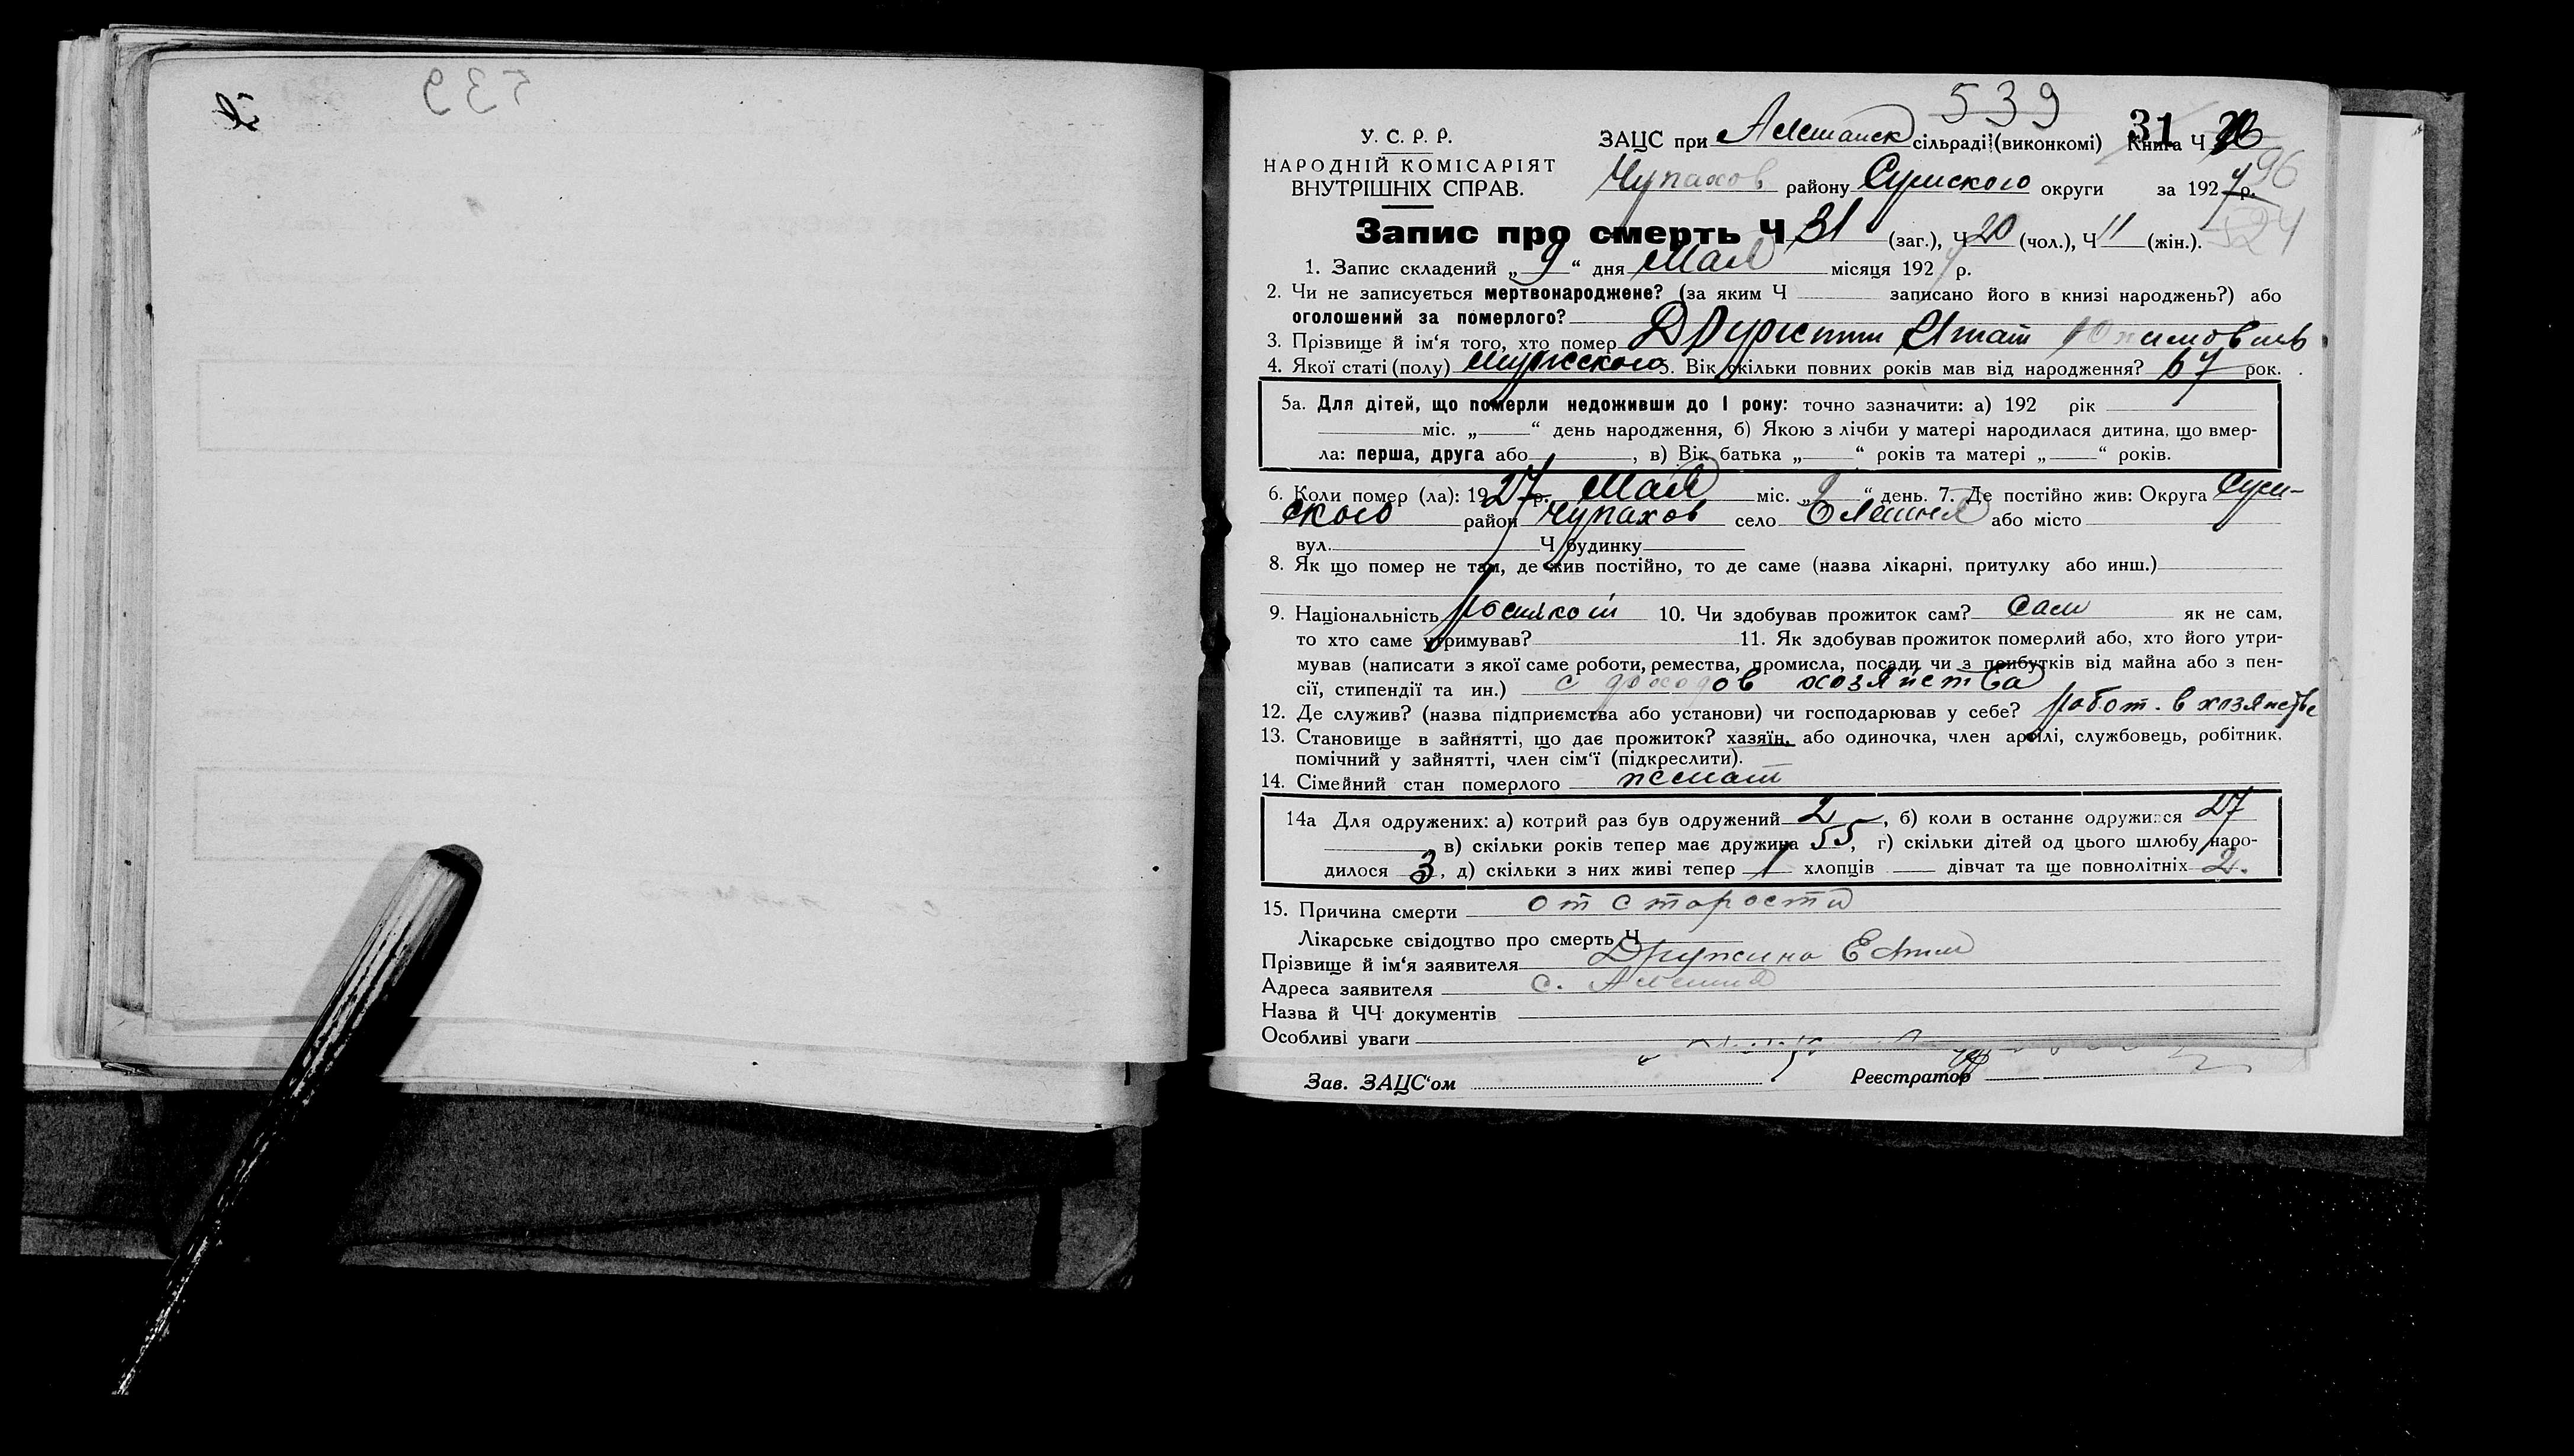 539
539
У. С. Р. Р.
НАРОДНІЙ КОМІСАРІЯТ
ВНУТРІШНІХ СПРАВ.
ЗАЦС при Алешанск сільраді (виконкомі) Книга Ч
31
Чупахов району Сумского округи за 1927 р.
96
524
Запис про смерть Ч 31 (заг.), Ч 20 (чол.), Ч 11 (жін.).
1. Запис складений „ 9 “ дня Мая місяця 1927 р.
2. Чи не записується мертвонароджене? (за яким Ч записано його в книзі народжень?) або
оголошений за померлого?
3. Прізвище й ім‘я того, хто помер
4. Якої статі (полу) мужского 5. Вік скільки повних років мав від народження? 67 рок.
5а. Для дітей, що померли недоживши до 1 року: точно зазначити: а) 192 рік
міс. „ “ день народження, б) Якою з лічби у матері народилася дитина, що вмер-
ла: перша, друга або , в) Вік батька „ “ років та матері „ “ років.
6. Коли помер (ла): 1927 р. Мая міс. „ 9 “ день. 7. Де постійно жив: Округа Сум-
ского район Чупахов село Олешня або місто
вул. Ч будинку
8. Як що помер не там, де жив постійно, то де саме (назва лікарні, притулку або инш.)
9. Національність 10. Чи здобував прожиток сам? сам як не сам,
то хто саме утримував? 11. Як здобував прожиток померлий або, хто його утри-
мував (написати з якої саме роботи, ремества, промисла, посади чи з прибутків від майна або з пен-
сії, стипендії та ин.) с доходов хозяйства
12. Де служив? (назва підприємства або установи) чи господарював у себе? работ. в хозяйстве
13. Становище в зайнятті, що дає прожиток? хазяїн, або одиночка, член артілі, службовець, робітник,
помічний у зайнятті, член сім‘ї (підкреслити).
14. Сімейний стан померлого женат
14а Для одружених: а) котрий раз був одружений 2, б) коли в останнє одружився 27
в) скільки років тепер має дружина 55, г) скільки дітей од цього шлюбу наро-
дилося 3, д) скільки з них живі тепер 1 хлопців дівчат та ще повнолітніх 2.
15. Причина смерти от старости
Лікарське свідоцтво про смерть Ч
Прізвище й ім‘я заявителя
Адреса заявителя с. Алешня
Назва й ЧЧ документів
Особливі уваги
Зав. ЗАЦС‘ом Реєстратор